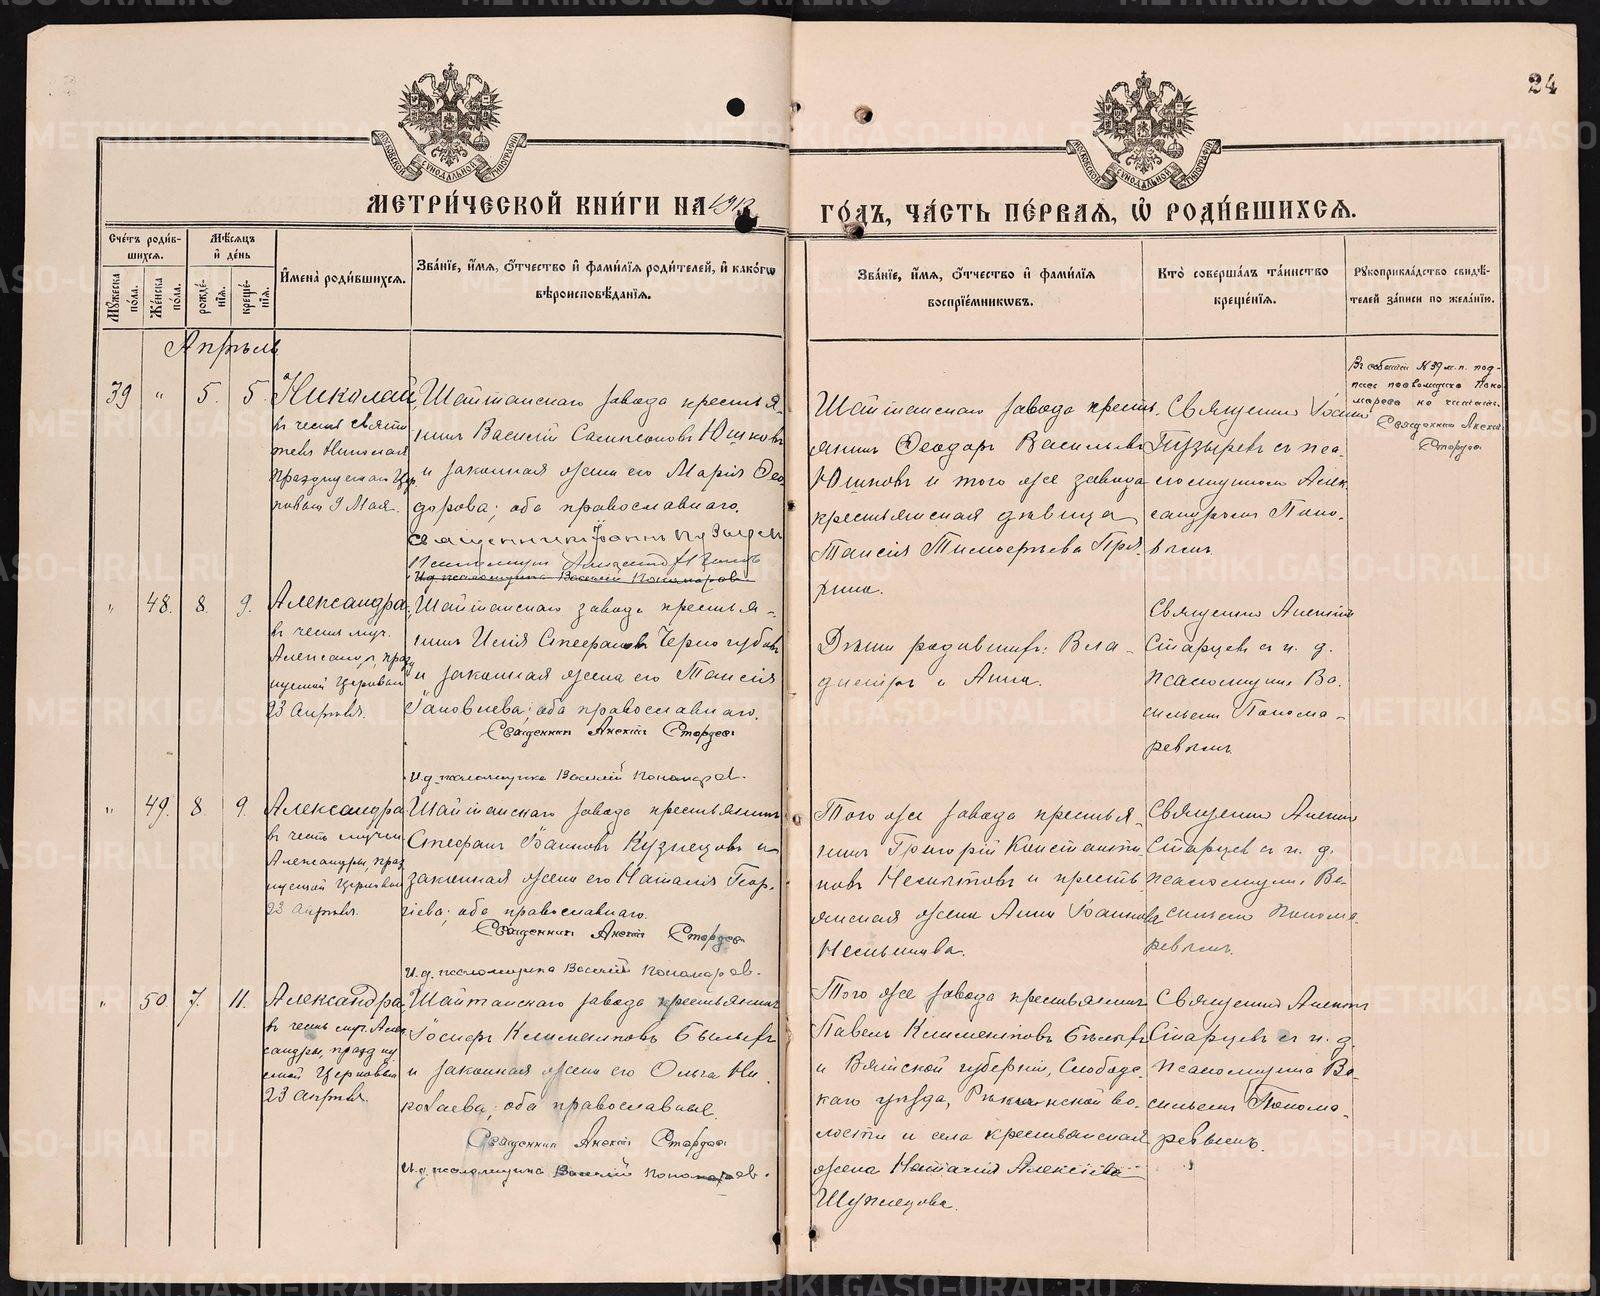 24
МЕТРИ́ЧЕСКОЙ КНИ́ГИ НА 1912
ГО́ДЪ, ЧА́СТЬ ПЕ́РВАЯ, Ѡ РОДИ́ВШИХСЯ.
Сче́тъ роди́в-
шихся.
Мѣ́сяцъ
и де́нь
Мꙋ́жеска
по́ла.
Же́нска
по́ла.
рожде́-
нїя.
креще́-
нїя.
Имена̀ роди́вшихся.
Зва́нїе, и́мя, ѻ́тчество и фами́лїя роди́телей, и како́гѡ
вѣроисповѣ́данїя.
Зва́нїе, и́мя, ѻ́тчество и фами́лїя
воспрїе́мникѡвъ.
Кто̀ соверша́лъ та́инство
креще́нїя.
Рꙋкоприкла́дство свидѣ́-
телей за́писи по жела́нїю.
Апрѣль
39 " 5. 5.
Николай,
въ честь святи
теля Николая
празднуемаго Цер.
ковью 9 Мая.
Шайтанскаго завода крестья-
нинъ Василій Сампсоновъ Юшковъ
и законная жена его Марія Ѳео
дорова; оба православнаго.
Священникъ Іоаннъ Пузырев
Псаломщик
И.д. псаломщика Василій Пономарев
Шайтанскаго завода кресть.
янинъ Ѳеодоръ Васильевъ
Юшковъ и того же завода
крестьянская дѣвица
Таисія Тимоѳеева Пря.
хина.
Священникъ Іоаннъ
Пузыревъ съ пса.
ломщикомъ Алек.
сандромъ Попо.
вымъ.
под-
пись псаломщика Поно
марева не считать.
Священник Алексій
Старцев
" 48. 8. 9.
Александра,
въ честь муч.
Александры, празд
нуемой Церковью
23 Апрѣля.
Шайтанскаго завода крестья-
нинъ Илія Стефановъ Черногубовъ
и законная жена его Таисія
Іаковлева; оба православнаго.
Священник Алексій Старцев
И.д. псаломщика Василій Пономарев.
Дѣти родивших: Вла-
диміръ и Анна.
Священник Алексій
Старцев съ и. д.
псаломщика Ва.
сильемъ Понома-
ревымъ.
" 49. 8 9.
Александра
въ честь мучен.
Александры, празд
нуемой Церковью
23 Апрѣля.
Шайтанскаго завода крестьянинъ
Стефанъ Іоанновъ Кузнецовъ и
законная жена его Наталія Геор.
гіева; оба православнаго.
Священник Алексій Старцев
И.д. псаломщика Василій Пономарев.
Того же завода крестья-
нинъ Григорій Константи
новъ и кресть
янская жена Анна Іоаннова
Священник Алексій
Старцев съ и. д.
псаломщика Ва-
сильемъ Понома.
ревымъ.
" 50. 7. 11.
Александра,
въ честь муч. Алек
сандры, праздну
емой Церковью
23 Апрѣля.
Шайтанскаго завода крестьянинъ
Іосифъ Климентовъ Бѣлыхъ
и законная жена его Ольга Ни
колаева; оба православные.
Священник Алексій Старцев
И.д. псаломщика Василій Пономарев.
Того же завода крестьянинъ
Павелъ Климентовъ Бѣлыхъ
и Вятской губерніи, Слободс.
каго уѣзда, во-
лости и села крестьянская
жена Наталія Алексіева
Священник Алексій
Старцев съ и. д.
псаломщика Ва-
сильемъ Понома-
ревымъ.